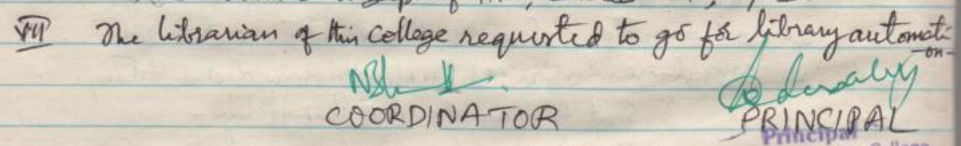 VII The librarian of this college requested to go for library automati
-on-
COORDINATOR PRINCIPAL
Principal
College